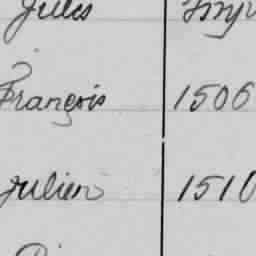 Jules
François 1506
Julien 1510